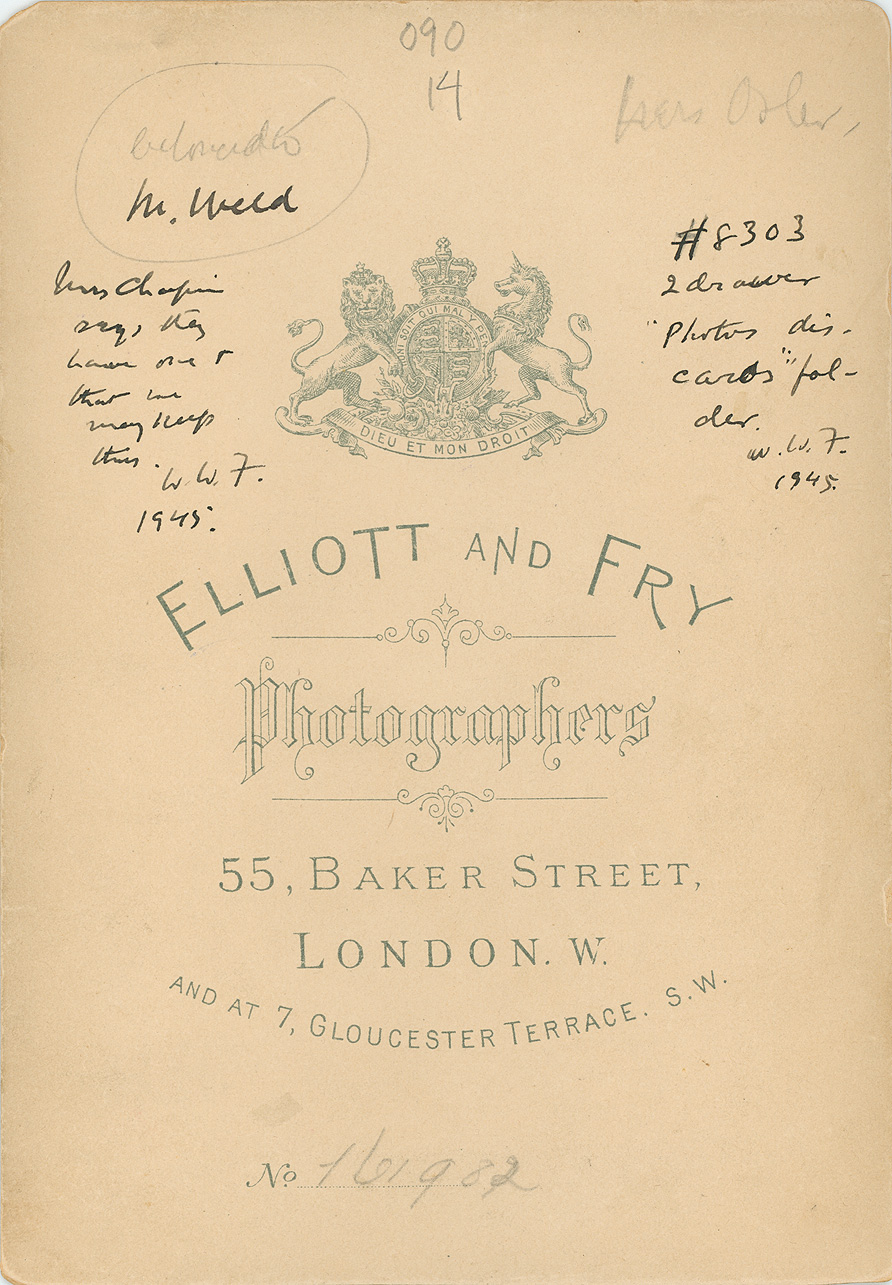 090
14
Osler,
belonged to
M. Weld
Mrs Chapin
says they
have one &
that we
may keep
this.
W. W. F.
1945.
#8303
2 drawer
"Photos dis-
cards" fol-
der.
W. W. F.
1945.
HONI SOIT QUI MAL Y PENSE
DIEU ET MON DROIT
ELLIOTT AND FRY
Photographers
55, BAKER STREET,
LONDON. W.
AND AT 7, GLOUCESTER TERRACE. S.W.
No 161982